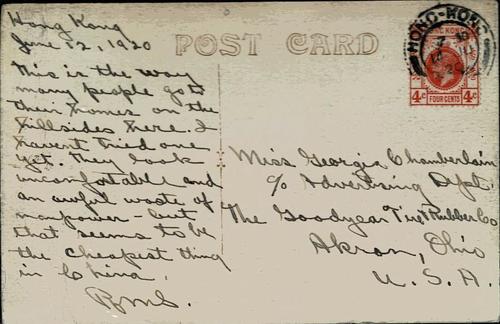 Hong Kong
June 12, 1920
POST CARD
This is the way
many people go to
their homes on the
hillsides here. I
havent tried one
yet. They look
uncomfortable and
an awful waste of
manpower - but
that seems to be
the cheapest thing
in China.
RMS.
HONG-KONG
HONG KONG
4c 4c
FOUR CENTS
Miss Georgia Chamberlain
c/o Advertising Dept.
The Goodyear Tire & Rubber Co
Akron, Ohio
U. S. A.